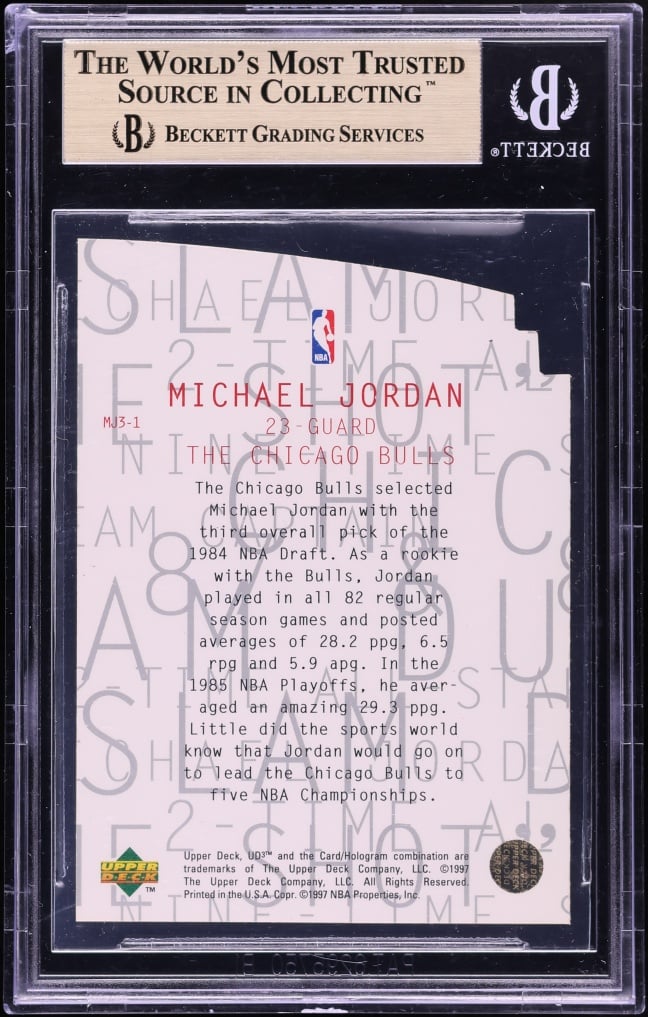 THE WORLD'S MOST TRUSTED
SOURCE IN COLLECTING™
B BECKETT GRADING SERVICES
B
BECKETT®
SLAM
CHAEL JORD
2-TIME AL
SHOT
NBA
MICHAEL JORDAN
MJ3-1
23-GUARD
THE CHICAGO BULLS
The Chicago Bulls selected
Michael Jordan with the
third overall pick of the
1984 NBA Draft. As a rookie
with the Bulls, Jordan
played in all 82 regular
season games and posted
averages of 28.2 ppg, 6.5
rpg and 5.9 apg. In the
1985 NBA Playoffs, he aver-
aged an amazing 29.3 ppg.
Little did the sports world
know that Jordan would go on
to lead the Chicago Bulls to
five NBA Championships.
UPPER
DECK
™
Upper Deck, UD3™ and the Card/Hologram combination are
trademarks of The Upper Deck Company, LLC. ©1997
The Upper Deck Company, LLC. All Rights Reserved.
Printed in the U.S.A. Copr. ©1997 NBA Properties, Inc.